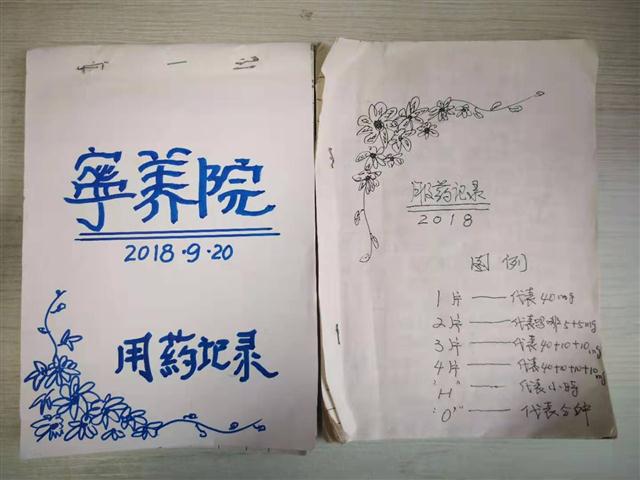 寧养院
2018·9·20
用药记录
服药记录
2018
图例
1片——代表40mg
2片——代表5+5mg
3片——代表40+10+10mg
4片——代表40+10+10+10mg
"H"——代表小时
"0"——代表分钟